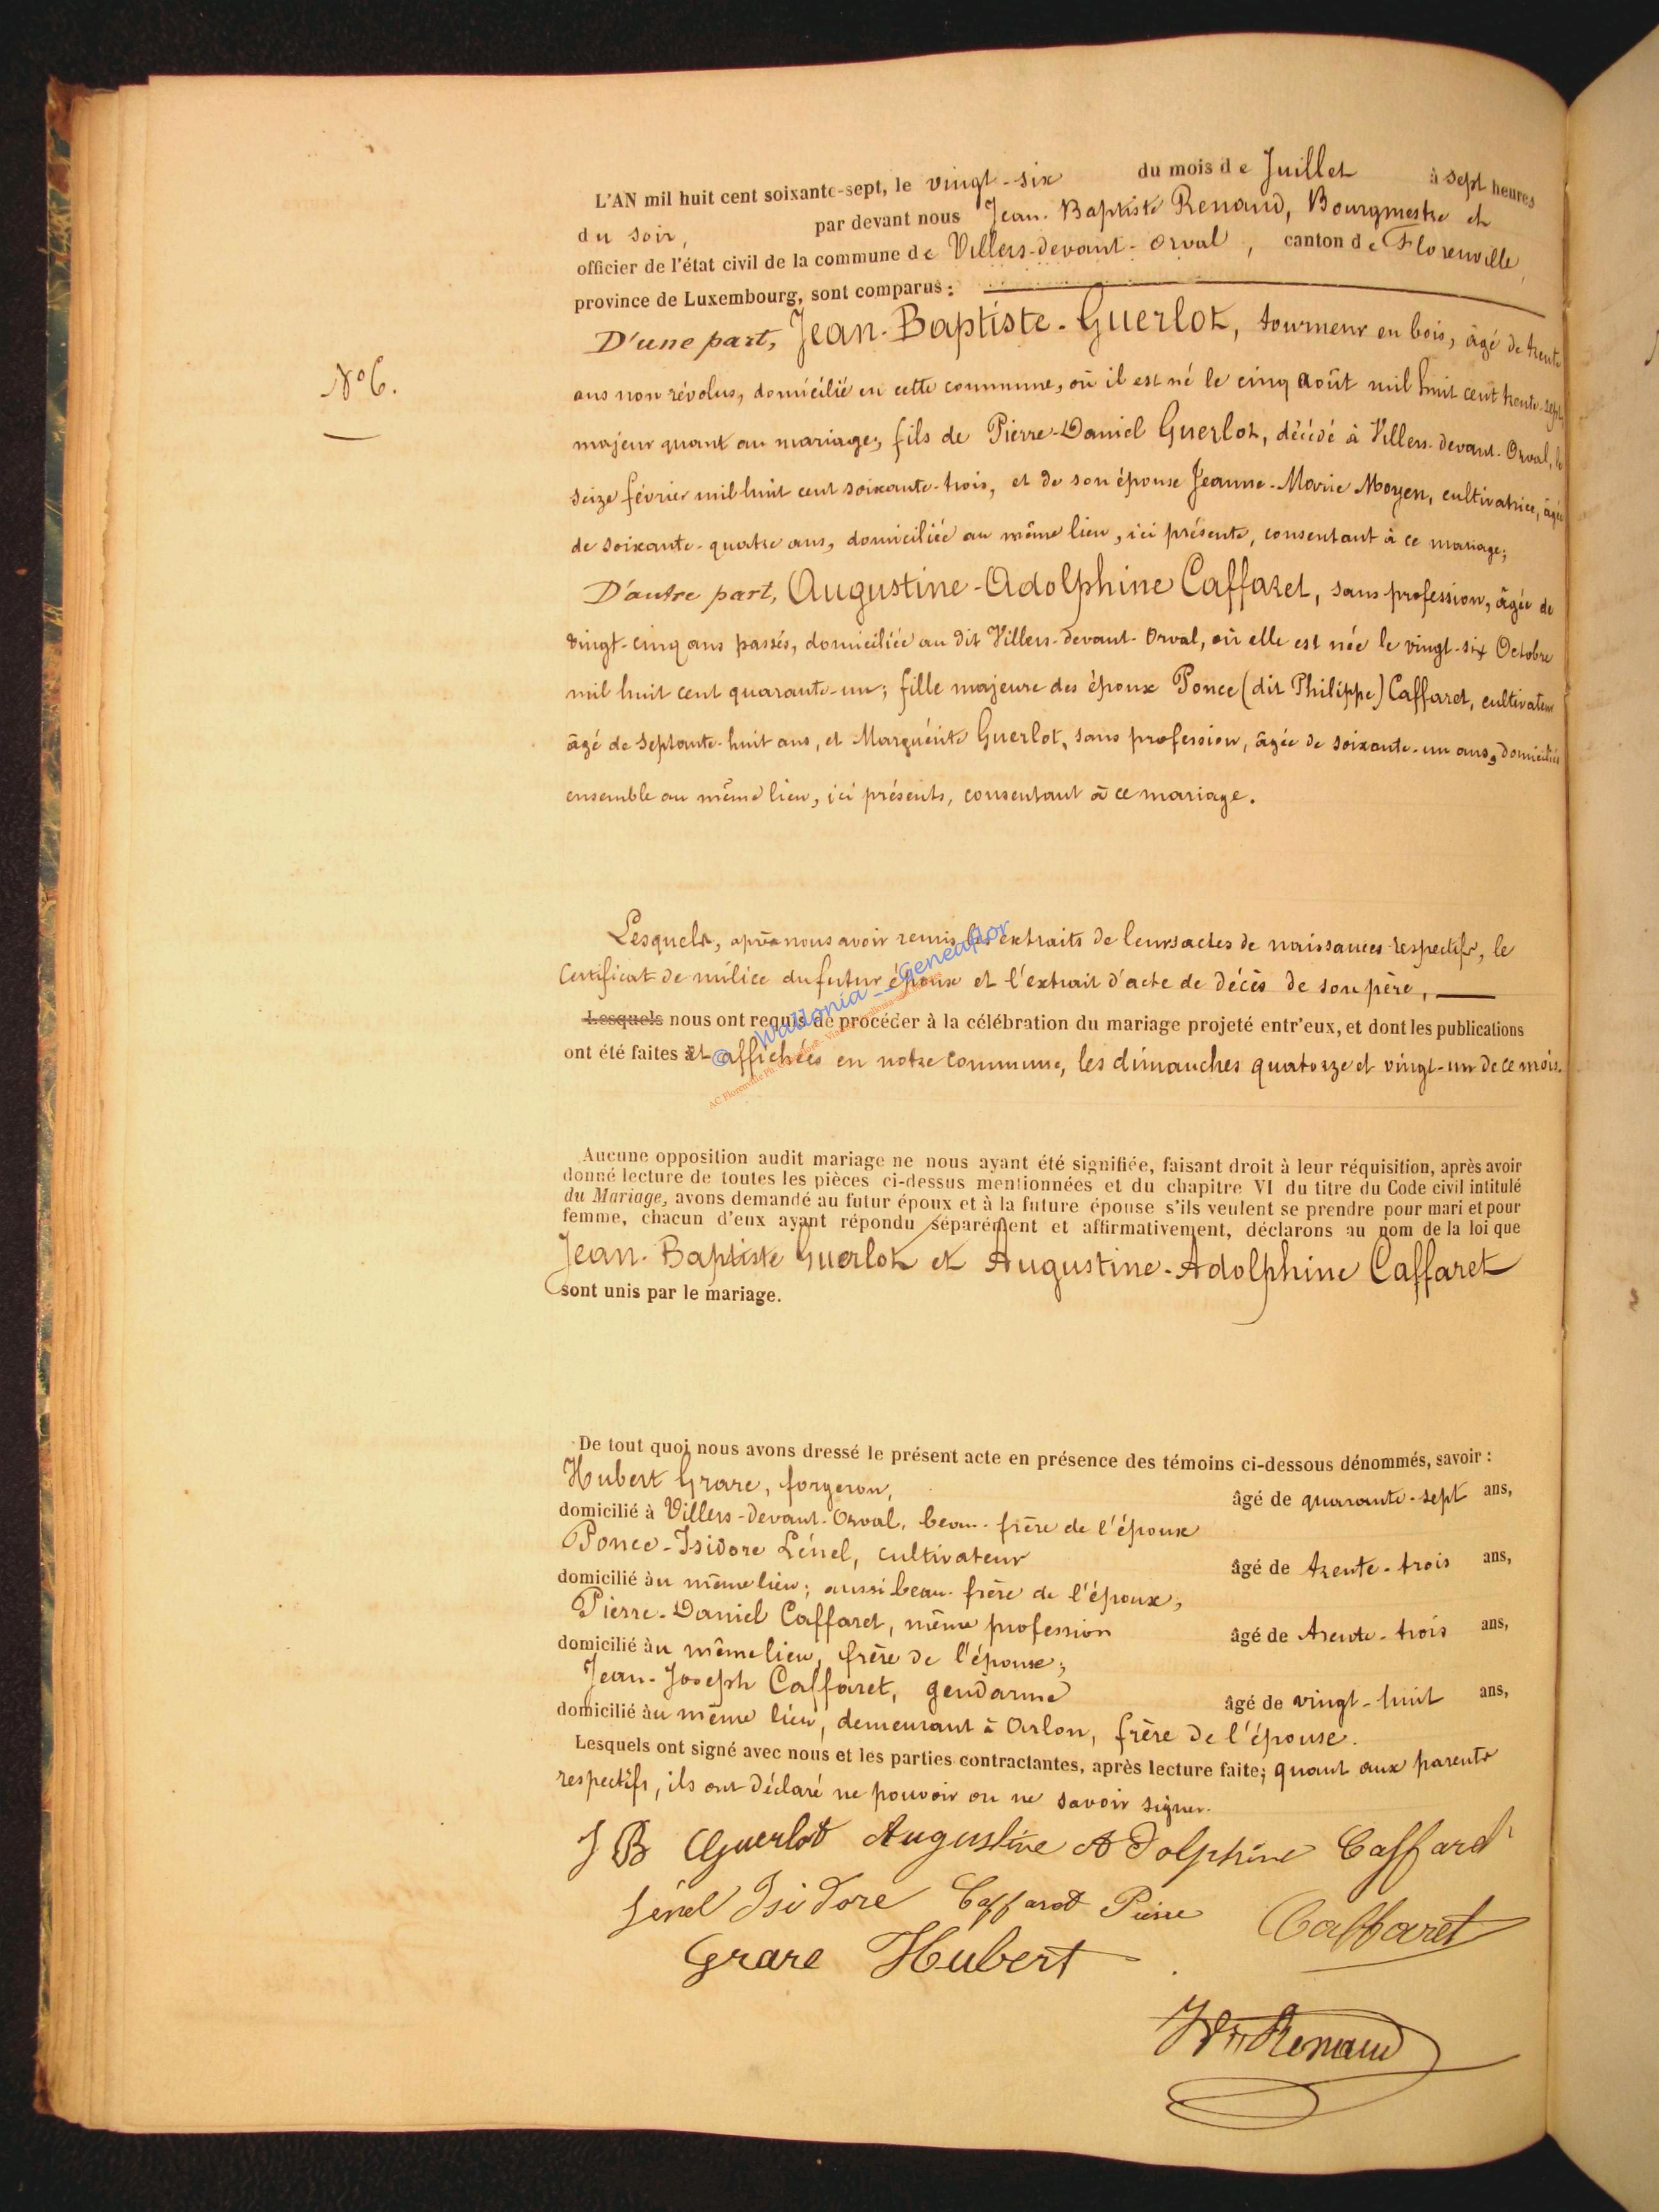 L'AN mil huit cent soixante-sept, le vingt-six du mois de Juillet à sept heures
du soir, par devant nous Jean-Baptiste Renaud, Bourgmestre et
officier de l'état civil de la commune de Villers-devant-Orval, canton de Florenville,
province de Luxembourg, sont comparus :
N° 6.
D'une part, Jean-Baptiste-Guerlot, tourneur en bois, âgé de trente
ans non révolus, domicilié en cette commune, où il est né le cinq août mil huit cent trente-sept,
majeur quant au mariage, fils de Pierre-Daniel Guerlot, décédé à Villers-devant-Orval, le
seize février mil huit cent soixante-trois, et de son épouse Jeanne-Marie Moyen, cultivatrice, âgée
de soixante-quatre ans, domiciliée au même lieu, ici présente, consentant à ce mariage;
D'autre part, Augustine-Adolphine Caffaret, sans profession, âgée de
vingt-cinq ans passés, domiciliée au dit Villers-devant-Orval, où elle est née le vingt-six Octobre
mil huit cent quarante-un; fille majeure des époux Ponce (dit Philippe) Caffaret, cultivateur
âgé de septante-huit ans, et Marguérite Guerlot, sans profession, âgée de soixante-un ans, domiciliés
ensemble au même lieu, ici présents, consentant à ce mariage.
Lesquels, après nous avoir remis les extraits de leurs actes de naissances respectifs, le
Certificat de milice du futur époux et l'extrait d'acte de décès de son père,
Lesquels nous ont requis de procéder à la célébration du mariage projeté entr'eux, et dont les publications
ont été faites et affichées en notre commune, les dimanches quatorze et vingt-un de ce mois.
© Wallonia - Geneaflor
AC Florenville
Aucune opposition audit mariage ne nous ayant été signifiée, faisant droit à leur réquisition, après avoir
donné lecture de toutes les pièces ci-dessus mentionnées et du chapitre VI du titre du Code civil intitulé
du Mariage, avons demandé au futur époux et à la future épouse s'ils veulent se prendre pour mari et pour
femme, chacun d'eux ayant répondu séparément et affirmativement, déclarons au nom de la loi que
Jean-Baptiste Guerlot et Augustine-Adolphine Caffaret
sont unis par le mariage.
De tout quoi nous avons dressé le présent acte en présence des témoins ci-dessous dénommés, savoir :
Hubert Grare, forgeron, âgé de quarante-sept ans,
domicilié à Villers-devant-Orval, beau-frère de l'époux
Ponce-Isidore Lénel, cultivateur âgé de trente-trois ans,
domicilié au même lieu; aussi beau-frère de l'époux;
Pierre-Daniel Caffaret, même profession âgé de trente-trois ans,
domicilié au même lieu, frère de l'épouse;
Jean-Joseph Caffaret, gendarme âgé de vingt-huit ans,
domicilié au même lieu, demeurant à Arlon, frère de l'épouse.
Lesquels ont signé avec nous et les parties contractantes, après lecture faite; quant aux parents
respectifs, ils ont déclaré ne pouvoir ou ne savoir signer.
J B Guerlot Augustine Adolphine Caffaret
Lénel Isidore Caffaret Pierre Caffaret
Grare Hubert
JBte Renaud